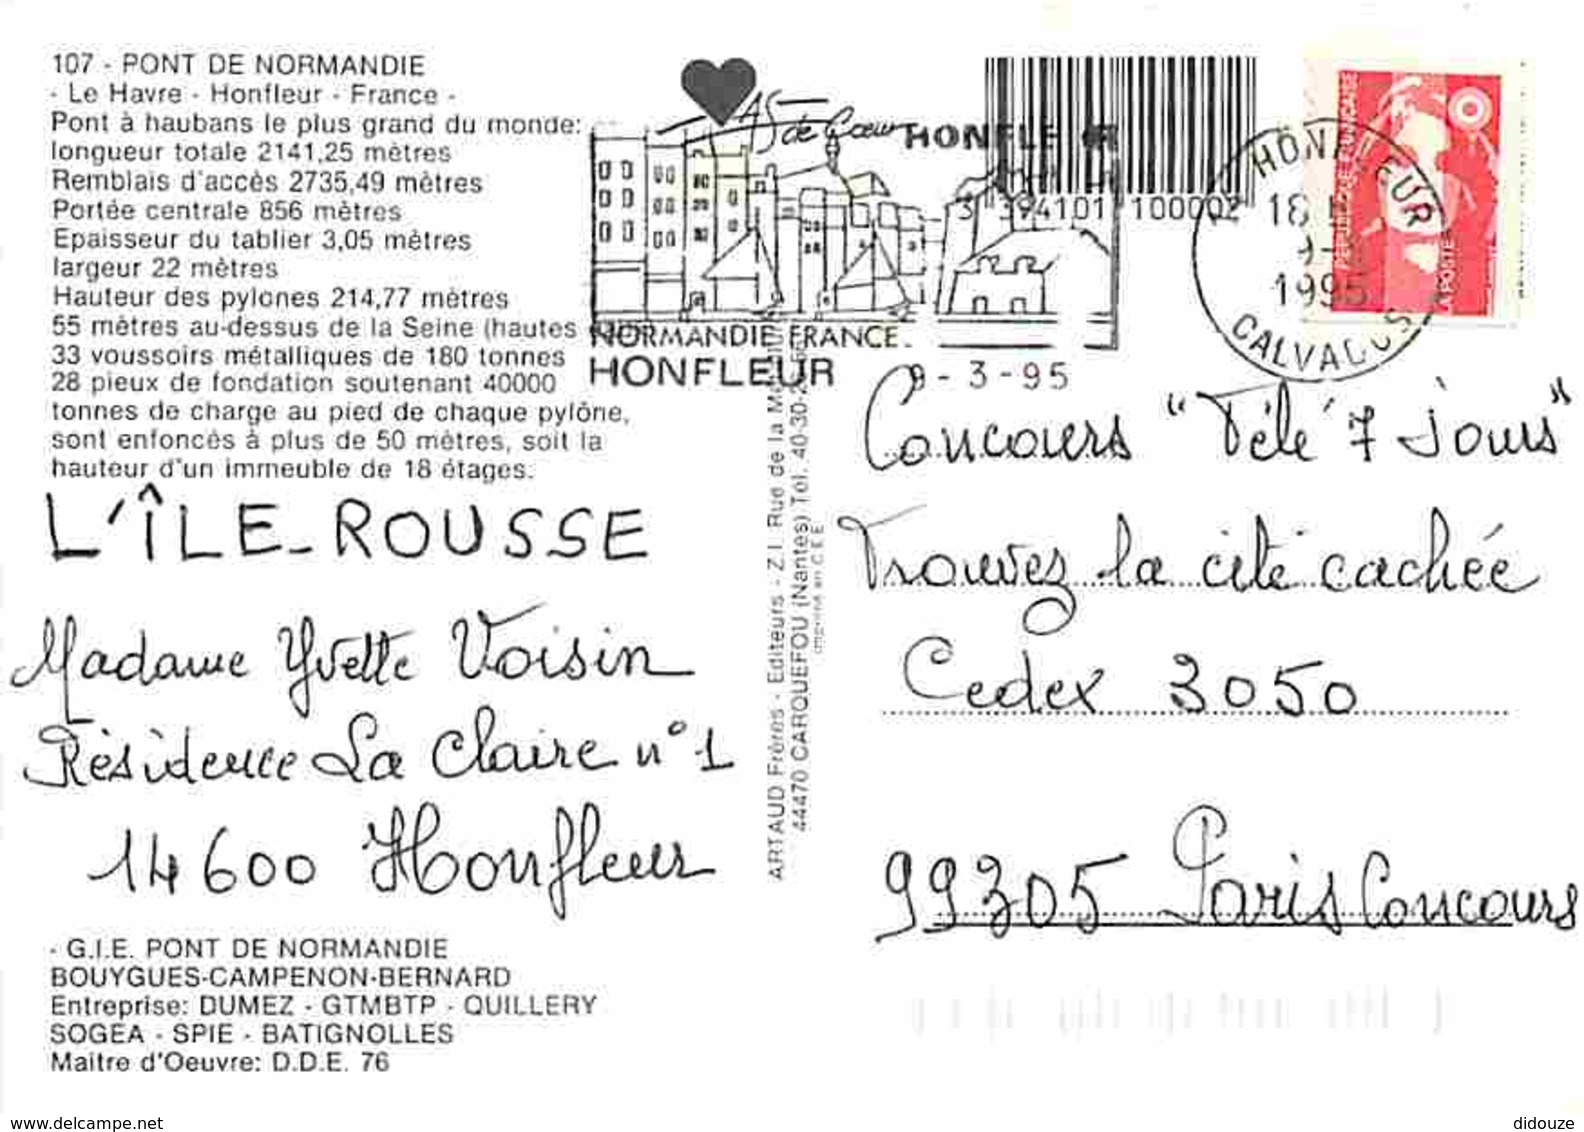 107 - PONT DE NORMANDIE
- Le Havre - Honfleur - France -
Pont à haubans le plus grand du monde:
longueur totale 2141,25 mètres
Remblais d'accès 2735,49 mètres
Portée centrale 856 mètres
Epaisseur du tablier 3,05 mètres
largeur 22 mètres
Hauteur des pylones 214,77 mètres
55 mètres au-dessus de la Seine (hautes
33 voussoirs métalliques de 180 tonnes
28 pieux de fondation soutenant 40000
tonnes de charge au pied de chaque pylône,
sont enfoncés à plus de 50 mètres, soit la
hauteur d'un immeuble de 18 étages.
L'ÎLE-ROUSSE
Madame Yvette Voisin
Résidence La Claire n°1
14600 Honfleur
- G.I.E. PONT DE NORMANDIE
BOUYGUES-CAMPENON-BERNARD
Entreprise: DUMEZ - GTMBTP - QUILLERY
SOGEA - SPIE - BATIGNOLLES
Maitre d'Oeuvre: D.D.E. 76
AS de Cœur
NORMANDIE FRANCE
HONFLEUR
HONFLE R
9-3-95
3 394101 100002
HONFLEUR
18
9-
1995
CALVADOS
REPUBLIQUE FRANÇAISE
LA POSTE
ARTAUD Frères - Editeurs - Z.I. Rue de la
44470 CARQUEFOU (Nantes) Tél. 40-30-
Imprimé en C.E.E.
Concours "Télé 7 Jours"
Trouvez la cité cachée
Cedex 3050
99305 Paris Concours
delcampe.net
didouze